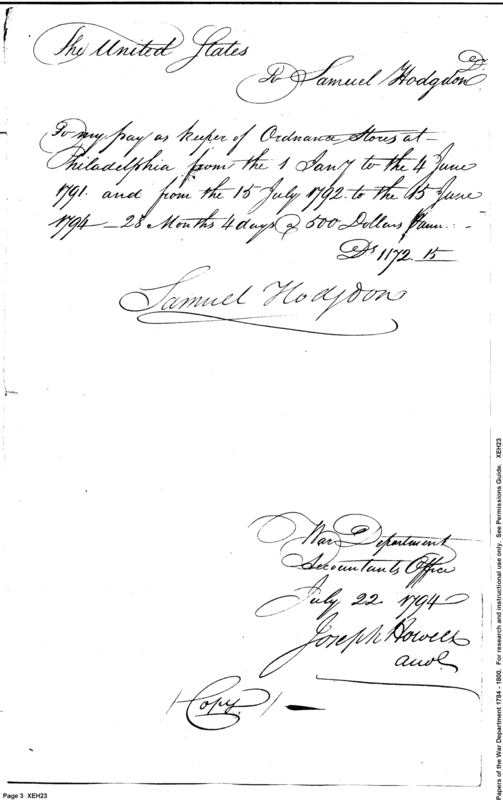 The United States
To Samuel Hodgdon Dr.
To my pay as keeper of Ordnance Stores at
Philadelphia from the 1 Jany to the 4 June
1791. and from the 15 July 1792. to the 15 June
1794 — 28 Months 4 days @ 500 Dollars Pann. -
Ds 1172. 15
Samuel Hodgdon
War Department
Accountants Office
July 22 1794
Joseph Howell
(Copy)
Page 3 XEH23
Papers of the War Department 1784 - 1800. For research and instructional use only. See Permissions Guide. XEH23